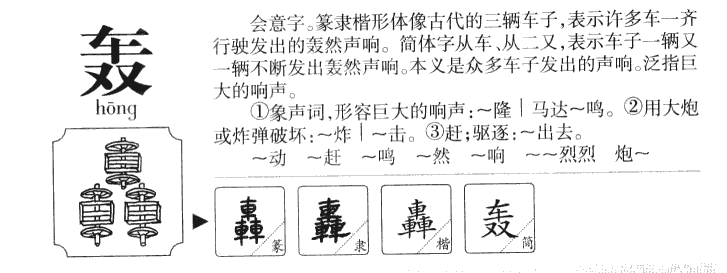 轰
hōng
会意字。篆隶楷形体像古代的三辆车子,表示许多车一齐
行驶发出的轰然声响。简体字从车、从二又,表示车子一辆又
一辆不断发出轰然声响。本义是众多车子发出的声响。泛指巨
大的响声。
①象声词,形容巨大的响声:～隆｜马达～鸣。②用大炮
或炸弹破坏:～炸｜～击。③赶;驱逐:～出去。
～动 ～赶 ～鸣 ～然 ～响 ～～烈烈 炮～
轟 篆 轟 隶 轟 楷 轰 简